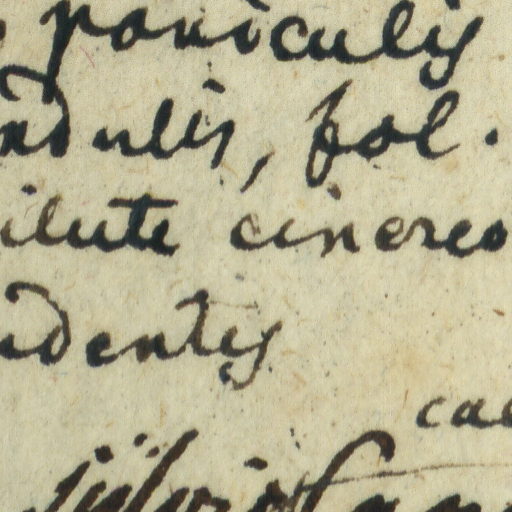 paniculis
ndulis, fol.
ilute cinereo
identis
cae